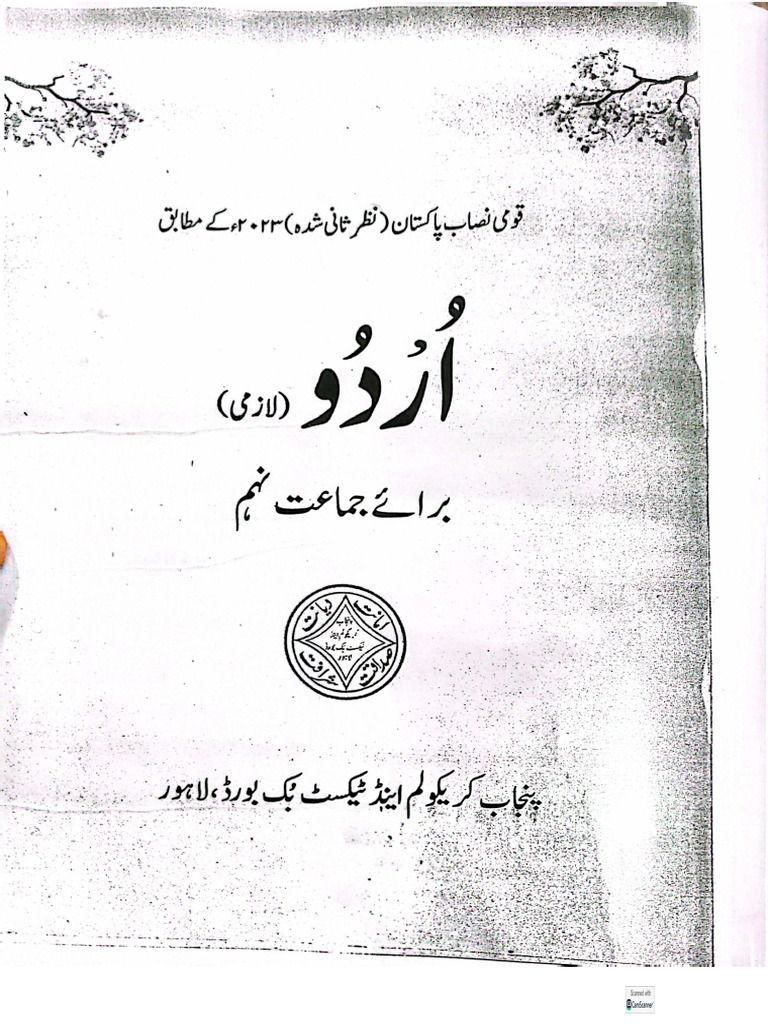 قومی نصاب پاکستان (نظرِ ثانی شدہ) ۲۰۲۳ء کے مطابق
اُردُو (لازمی)
برائے جماعت نہم
امانت
دیانت
صداقت
شرافت
پنجاب
کریکولم اینڈ
ٹیکسٹ بک بورڈ
لاہور
پنجاب کریکولم اینڈ ٹیکسٹ بُک بورڈ، لاہور
Scanned with
CamScanner